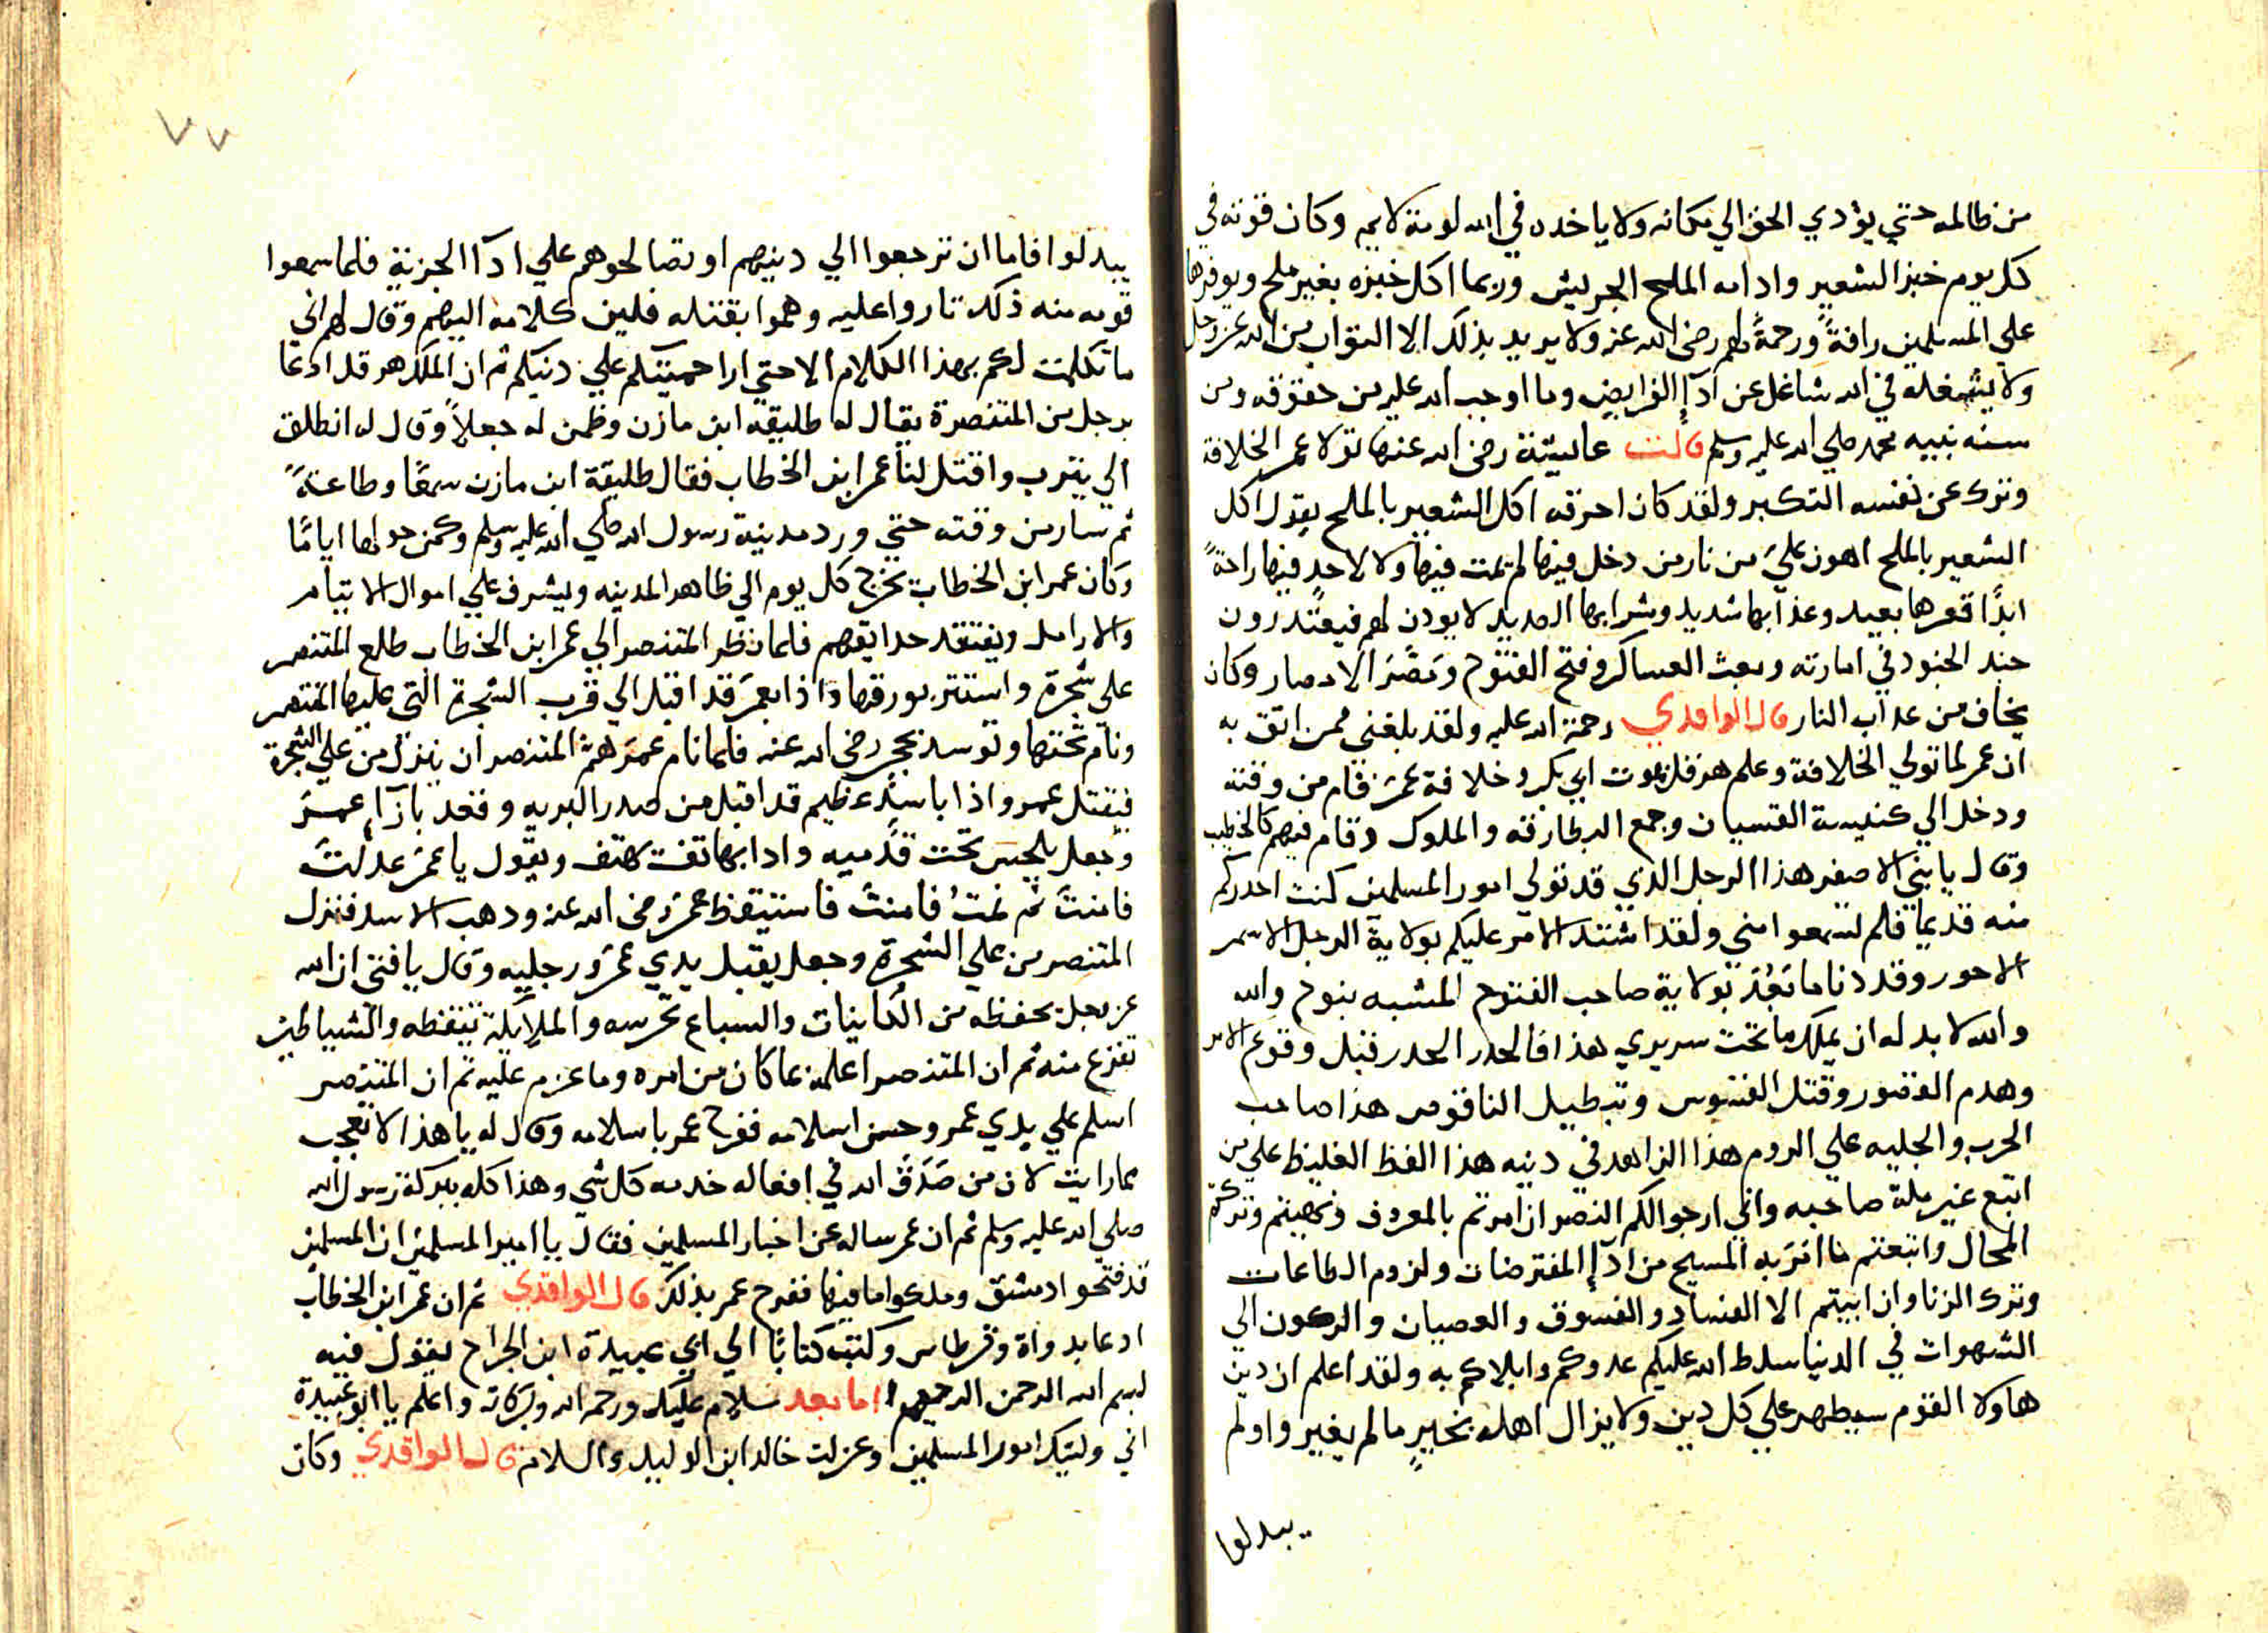 من ظالمه حتي يؤدي الحق الي مكانه ولا ياخده في الله لومة لايم وكان قوته في
كل يوم خبز الشعير وادامه الملح الجريش وربما اكل خبزه بغير ملح ويوفرها
علي المسلمين رافةً ورحمةً لهم رضي الله عنه ولا يريد بذلك الا الثواب من الله عز وجل
ولا يشغله في الله شاغل عن ادآء الفرايض وما اوجب الله عليه من حقوقه ومن
سنه نبيه محمد صلي الله عليه وسلم قالت عايشة رضي الله عنها تولا عمر الخلافة
وترك عن نفسه التكبر ولقد كان احرقه اكل الشعير بالملح يقول اكل
الشعير بالملح اهون عليّ من نار من دخل فيها لم يمت فيها ولا لاحدٍ فيها راحةً
ابدًا قعرها بعيد وعذابها شديد وشرابها الصديد لا يودن لهم فيعتدرون
جند الجنود في امارته وبعث العساكر وفتح الفتوح ومَصَّرَ الامصار وكان
يخاف من عداب النار قال الواقدي رحمة الله عليه ولقد بلغني ممن اثق به
ان عمر لما تولي الخلافة وعلم هرقل بموت ابي بكر وخلافة عمر قام من وقته
ودخل الي كنيسة القسيان وجمع البطارقه والملوك وقام فيهم كالخطيب
وقال يا بني الاصفر هذا الرجل الذي قد تولي امور المسلمين كنت احدركم
منه قديما فلم تسمعوا مني ولقد اشتد الامر عليكم بولاية الرجل الاسمر
الاحور وقد دنا ما بَعُدَ بولاية صاحب الفتوح المشبه بنوح والله
والله لا بد له ان يملك ما تحت سريري هذا فالحدر الحدر قبل وقوع الامر
وهدم القصور وقتل القسوس وتبطيل الناقوس هذا صاحب
الحرب والجليه علي الروم هذا الزاهد في دينه هذا الفظ الغليظ علي من
اتبع غير ملة صاحبه واني ارجوا لكم النصر ان امرتم بالمعروف ونهيتم وتركتم
المحال واتبعتم ما امركم به المسيح من ادآء المفترضات ولزوم الطاعات
وترك الزنا وان ابيتم الا الفساد والفسوق والعصيان والركون الي
الشهوات في الدنيا سلط الله عليكم عدوكم وابلاكم به ولقد اعلم ان دين
هاولا القوم سيظهر علي كل دين ولا يزال اهله بخيرٍ ما لم يغير واولم
يبدلوا
٧٧
يبدلوا فاما ان ترجعوا الي دينهم او تصالحوهم علي ادآ الجزية فلما سمعوا
قومه منه ذلك تاروا عليه وهموا بقتله فلين كلامه اليهم وقال لهم اني
ما تكلمت لكم بهذا الكلام الا حتي ارا حميتكم علي دينكم ثم ان الملك هرقل ادعا
برجل من المتنصرة يقال له طليقه ابن مازن وظمن له جعلاً وقال له انطلق
الي يترب واقتل لنا عمر ابن الخطاب فقال طليقة ابن مازن سمعًا وطاعةً
ثم سار من وقته حتي ورد مدينة رسول الله صلي الله عليه وسلم وكمن حولها ايامًا
وكان عمر ابن الخطاب يخرج كل يوم الي ظاهر المدينه ويشرف علي اموال الايتام
والارامل ويفتقد حدايقهم فلما نظر المتنصر الي عمر ابن الخطاب طلع المتنصر
علي شجرة واستتر بورقها واذا بعمر قد اقبل الي قرب الشجرة التي عليها المتنصر
ونام تحتها وتوسد بحجر رضي الله عنه فلما نام عمر هم المتنصر ان ينزل من علي الشجرة
فيقتل عمر واذا باسدٍ عظيم قد اقبل من صدر البريه وقعد بازآء عمر
وجعل يلحس تحت قدميه وادا بهاتف يهتف ويقول يا عمر عدلت
فامنت ثم نمت فامنت فاستيقظ عمر رضي الله عنه ودهب الاسد فنزل
المتنصر من علي الشجرة وجعل يقبل يدي عمر ورجليه وقال يا فتي ان الله
عز وجل يحفظه من الكاينات والسباع تحرسه والملايكة تيقظه والشياطين
تفزع منه ثم ان المتنصر اعلمه بما كان من امره وما عزم عليه ثم ان المتنصر
اسلم علي يدي عمر وحسن اسلامه ففرح عمر باسلامه وقال له يا هذا لا تعجب
مما رايت لان من صَدَقَ الله في افعاله خدمه كل شي وهذا كله ببركة رسول الله
صلي الله عليه وسلم ثم ان عمر ساله عن اخبار المسلمين فقال يا امير المسلمين ان المسلمين
قد فتحوا دمشق وملكوا ما فيها ففرح عمر بذلك قال الواقدي ثم ان عمر ابن الخطاب
ادعا بدواة وقرطاس وكتب كتابًا الي ابي عبيدة ابن الجراح يقول فيه
بسم الله الرحمن الرحيم اما بعد سلام عليك ورحمه الله وبركاته واعلم يا ابو عبيدة
اني وليتك امور المسلمين وعزلت خالد ابن الوليد والسلام قال الواقدي وكان